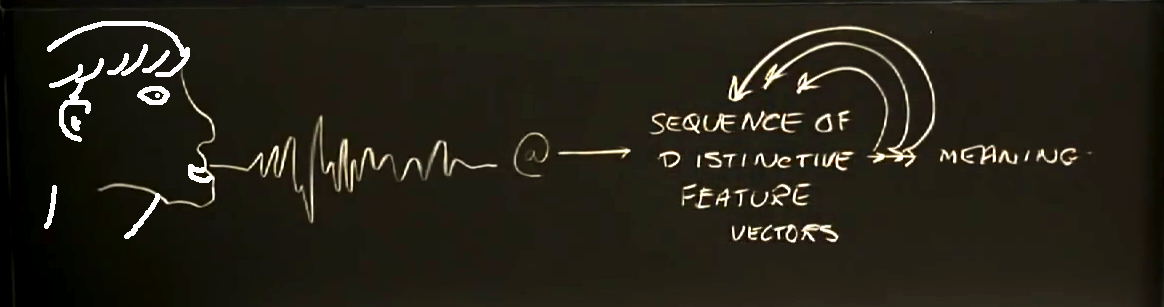 @
SEQUENCE OF
DISTINCTIVE
FEATURE
VECTORS
MEANING